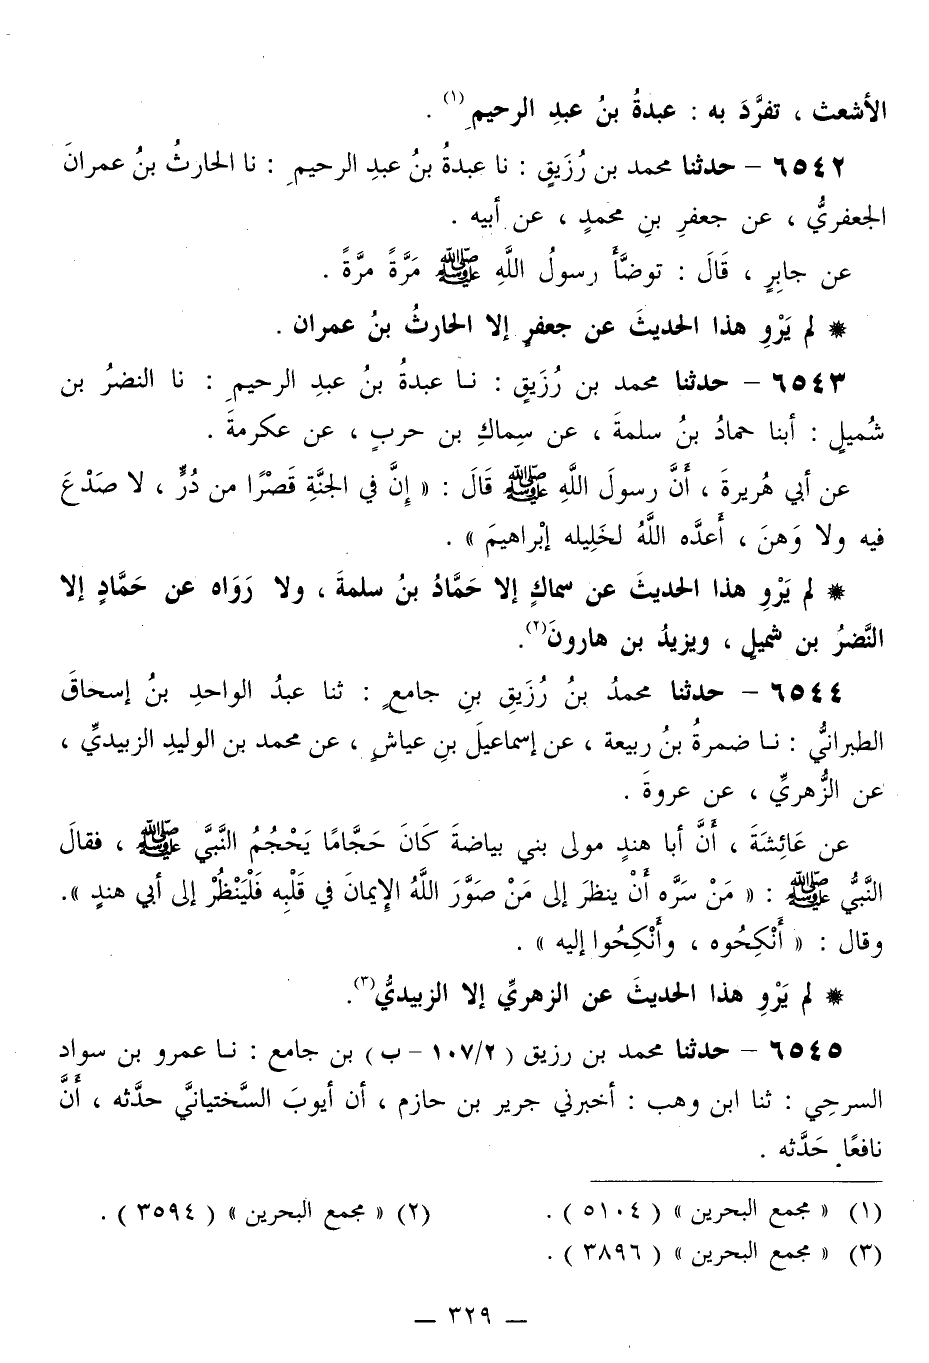 الأشعث ، تفرَّدَ به : عبدةُ بنُ عبدِ الرحيمِ (١) .
٦٥٤٢ – حدثنا محمد بن رُزَيقٍ : نا عبدةُ بنُ عبدِ الرحيمِ : نا الحارثُ بنُ عمرانَ
الجعفريُّ ، عن جعفرِ بنِ محمدٍ ، عن أبيه .
عن جابِرٍ ، قَالَ : توضَّأَ رسولُ اللَّهِ ﷺ مَرَّةً مرَّةً .
* لم يَرْوِ هذا الحديثَ عن جعفرٍ إلا الحارثُ بنُ عمران .
٦٥٤٣ – حدثنا محمد بن رُزَيقٍ : نـا عبدةُ بنُ عبدِ الرحيمِ : نا النضرُ بن
شُميلٍ : أبنا حمادُ بنُ سلمةَ ، عن سِماكِ بن حربٍ ، عن عكرمةَ .
عن أبي هُريرةَ ، أَنَّ رسولَ اللَّهِ ﷺ قَالَ : « إِنَّ في الجنَّةِ قَصْرًا من دُرٍّ ، لا صدْعَ
فيه ولا وَهنَ ، أَعدَّه اللَّهُ لخَلِيله إبْراهيمَ » .
* لم يَرْوِ هذا الحديثَ عن سماكٍ إلا حَمَّادُ بنُ سلمةَ ، ولا رَوَاه عن حَمَّادٍ إلا
النَّضرُ بن شميلٍ ، ويزيدُ بن هارونَ(٢).
٦٥٤٤ – حدثنا محمدُ بنُ رُزَيقِ بنِ جامعٍ : ثنا عبدُ الواحدِ بنُ إسحاقَ
الطبرانيُّ : نـا ضمرةُ بنُ ربيعة ، عن إسماعيلَ بنِ عياشٍ ، عن محمد بن الوليدِ الزبيديِّ ،
عن الزُّهريِّ ، عن عروةَ .
عن عَائِشَةَ ، أَنَّ أبا هندٍ مولى بني بياضةَ كَانَ حَجَّامًا يَحْجُمُ النَّبيَّ ﷺ ، فقالَ
النَّبيُّ ﷺ : « مَنْ سَرَّه أَنْ ينظرَ إلى مَنْ صَوَّرَ اللَّهُ الإِيمانَ في قَلْبِه فَلْيَنْظُرْ إلى أبي هندٍ ».
وقال : « أَنْكِحُوه ، وأَنْكِحُوا إليه » .
* لم يَرْوِ هذا الحديثَ عن الزهريِّ إلا الزبيديُّ(٣).
٦٥٤٥ – حدثنا محمد بن رزيق ( ١٠٧/٢ – ب ) بن جامع : نـا عمرو بن سواد
السرحِي : ثنا ابن وهب : أخبرني جرير بن حازم ، أن أيوبَ السَّختيانيَّ حدَّثه ، أَنَّ
نافعًا حَدَّثه .
(١) « مجمع البحرين » ( ٥١٠٤ ) .
(٢) « مجمع البحرين » ( ٣٥٩٤ ) .
(٣) « مجمع البحرين » ( ٣٨٩٦ ) .
– ٣٢٩ –